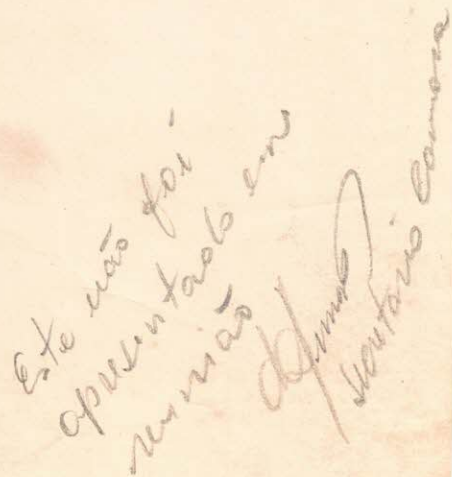 Este não foi
apresentado em
reunião
secretário Camara